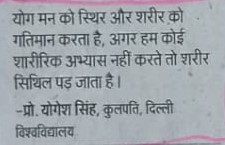 योग मन को स्थिर और शरीर को
गतिमान करता है, अगर हम कोई
शारीरिक अभ्यास नहीं करते तो शरीर
सिथिल पड़ जाता है।
-प्रो. योगेश सिंह, कुलपति, दिल्ली
विश्वविद्यालय